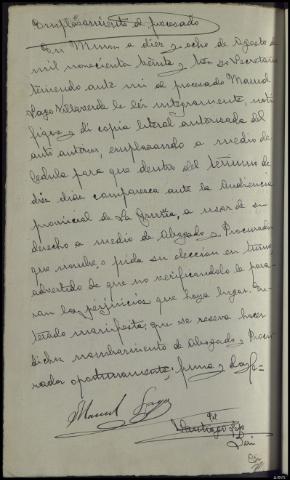 Emplazamiento de procesado
En Muros a diez y ocho de Agosto de
mil novecientos treinta y tres yo Secretario
teniendo ante mi al procesado Manuel
Lago Villaverde le leí integramente, noti
fiqué y di copia literal autorizada del
auto anterior, emplazando a medio de
cedula para que dentro del termino de
diez dias comparezca ante la Audiencia
provincial de La Coruña, a usar de su
derecho a medio de Abogado y Procurador
que nombre, o pida su eleccion en turno,
advertido de que no verificandolo le para-
ran los perjuicios que haya lugar. En-
terado manifiesta, que se reserva hacer
dicho nombramiento de Abogado y Procu-
rador oportunamente, firma y doy fe=
Manuel Lago
Santiago